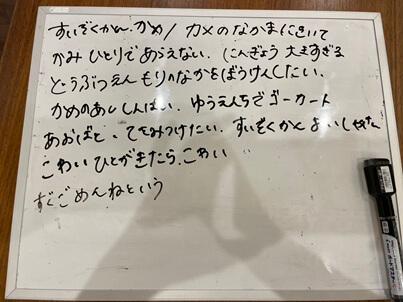 すいぞくかん、かめ/ カメのなかまにきいて
かみ ひとりであらえない、にんぎょう 大きすぎる
どうぶつえん もりのなかをぼうけんしたい、
かめのあし しんぱい、ゆうえんちでゴーカート
あおばと、てをみつけたい、すいぞくかん よい
こわい ひとがきたら、こわい
すぐごめんねという